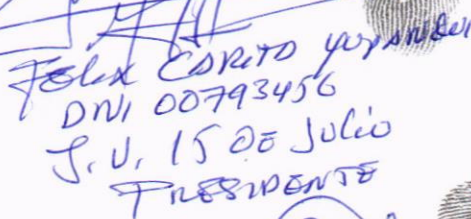 Felix CARITA YUPANQUI
DNI 00793456
J.V. 15 DE Julio
PRESIDENTE